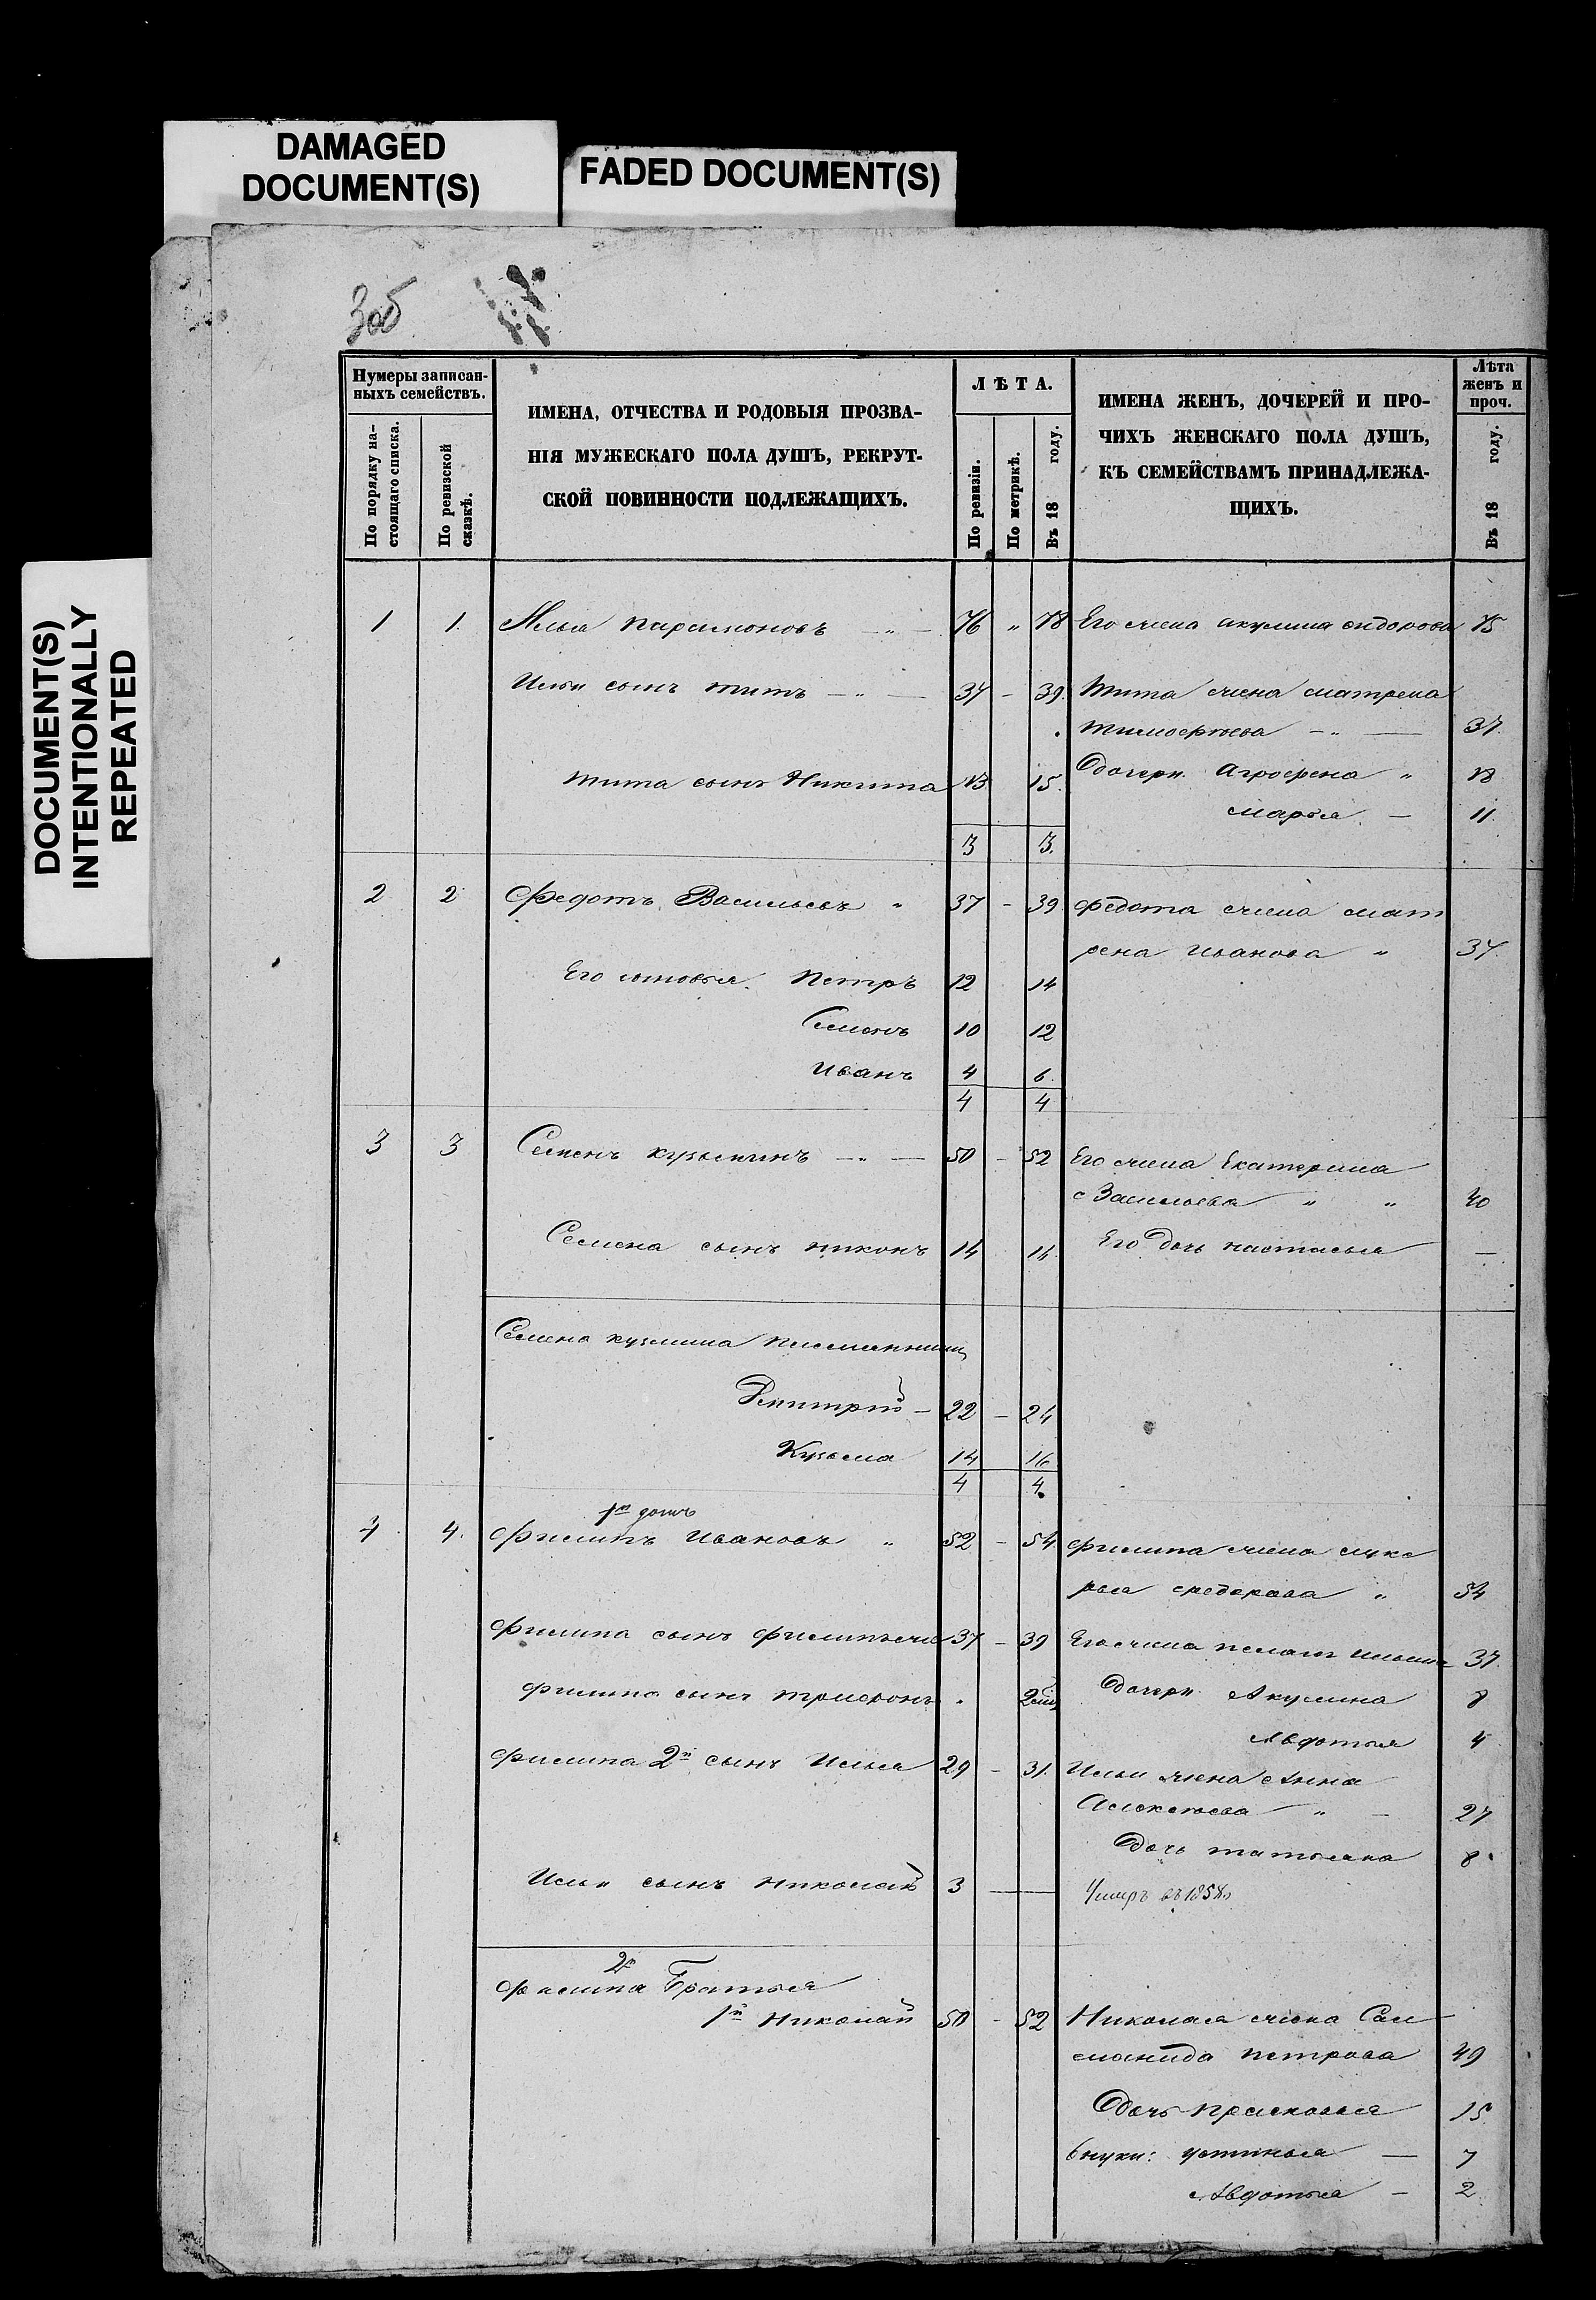 DAMAGED
DOCUMENT(S)
FADED DOCUMENT(S)
DOCUMENT(S)
INTENTIONALLY
REPEATED
3об
Нумеры записан-
ныхъ семействъ.
По порядку на-
стоящаго списка.
По ревизской
сказкѣ.
ИМЕНА, ОТЧЕСТВА И РОДОВЫЯ ПРОЗВА-
НІЯ МУЖЕСКАГО ПОЛА ДУШЪ, РЕКРУТ-
СКОЙ ПОВИННОСТИ ПОДЛЕЖАЩИХЪ.
ЛѢТА.
По ревизіи.
По метрикѣ.
Въ 18 году.
ИМЕНА ЖЕНЪ, ДОЧЕРЕЙ И ПРО-
ЧИХЪ ЖЕНСКАГО ПОЛА ДУШЪ,
КЪ СЕМЕЙСТВАМЪ ПРИНАДЛЕЖА-
ЩИХЪ.
Лѣта
женъ и
проч.
Въ 18 году.
1 1. Илья парамоновъ — „ — 76 „ 78 Его жена акулина сидорова 75
Ильи сынъ титъ — „ — 37 - 39. тита жена матрена
тимофѣева — „ — 37.
тита сынъ Никита 13 15. Дочери Агрофена „ 18
марья — 11
3 3.
2 2 Федотъ Васильевъ „ 37 - 39 федота жена мат
рена иванова „ 37.
Его сыновья. Петръ 12 14
Семенъ 10 12
иванъ 4 6.
4 4
3 3 Семенъ кузьминъ — „ — 50 - 52 Его жена Екатерина
Васильева „ „ 40
Семена сынъ никонъ 14 16 Его дочь настасья —
Семена кузмина племянники
Дмитрій — 22 - 24
Кузьма 14 16
4 4.
1й домъ
4. 4. филипъ ивановъ „ 52 - 54 филипа жена луке
рья федорова „ 54
филипа сынъ 37 - 39 Его жена пелагея ильина 37.
филипа сынъ трифонъ . Дочери Акулина 8
Авдотья 4
филипа 2й сынъ Илья 29 - 31. Ильи жена Анна
Алексѣева „ - 27
Дочь татьяна 8
Ильи сынъ николай 3 — Умеръ въ 1858г
2й
филипа Братья
1й николай 50 - 52 Николая жена Сал
манида петрова 49
Дочь прасковья 15
внуки: устинья — 7
Авдотья — 2